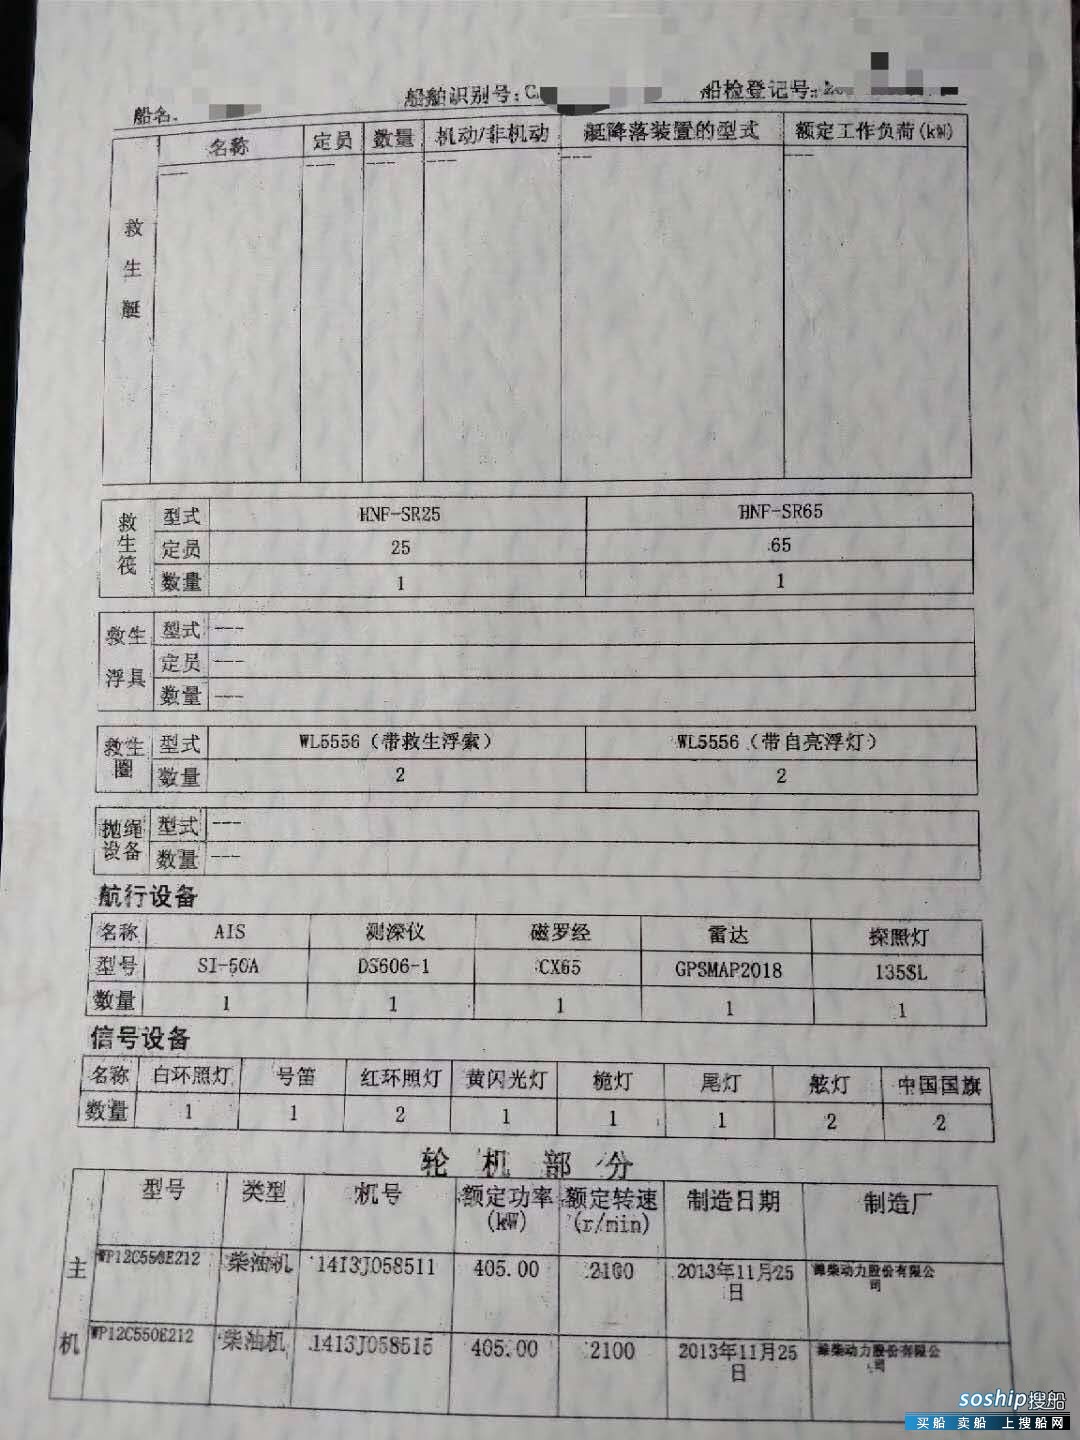 船名:
船舶识别号:C
船检登记号:2
救生艇 名称 定员 数量 机动/非机动 艇降落装置的型式 额定工作负荷(kW)
--- --- --- --- --- ---
救生筏 型式 HNF-SR25 HNF-SR65
定员 25 65
数量 1 1
救生浮具 型式 ---
定员 ---
数量 ---
救生圈 型式 WL5556(带救生浮索) WL5556(带自亮浮灯)
数量 2 2
抛绳设备 型式 ---
数量 ---
航行设备
名称 AIS 测深仪 磁罗经 雷达 探照灯
型号 SI-50A DS606-1 CX65 GPSMAP2018 135SL
数量 1 1 1 1 1
信号设备
名称 白环照灯 号笛 红环照灯 黄闪光灯 桅灯 尾灯 舷灯 中国国旗
数量 1 1 2 1 1 1 2 2
轮机部分
主机 型号 类型 机号 额定功率(kW) 额定转速(r/min) 制造日期 制造厂
WP12C550E212 柴油机 1413J058511 405.00 2100 2013年11月25日 潍柴动力股份有限公司
WP12C550E212 柴油机 1413J058515 405.00 2100 2013年11月25日 潍柴动力股份有限公司
soship搜船
买船 卖船 上搜船网